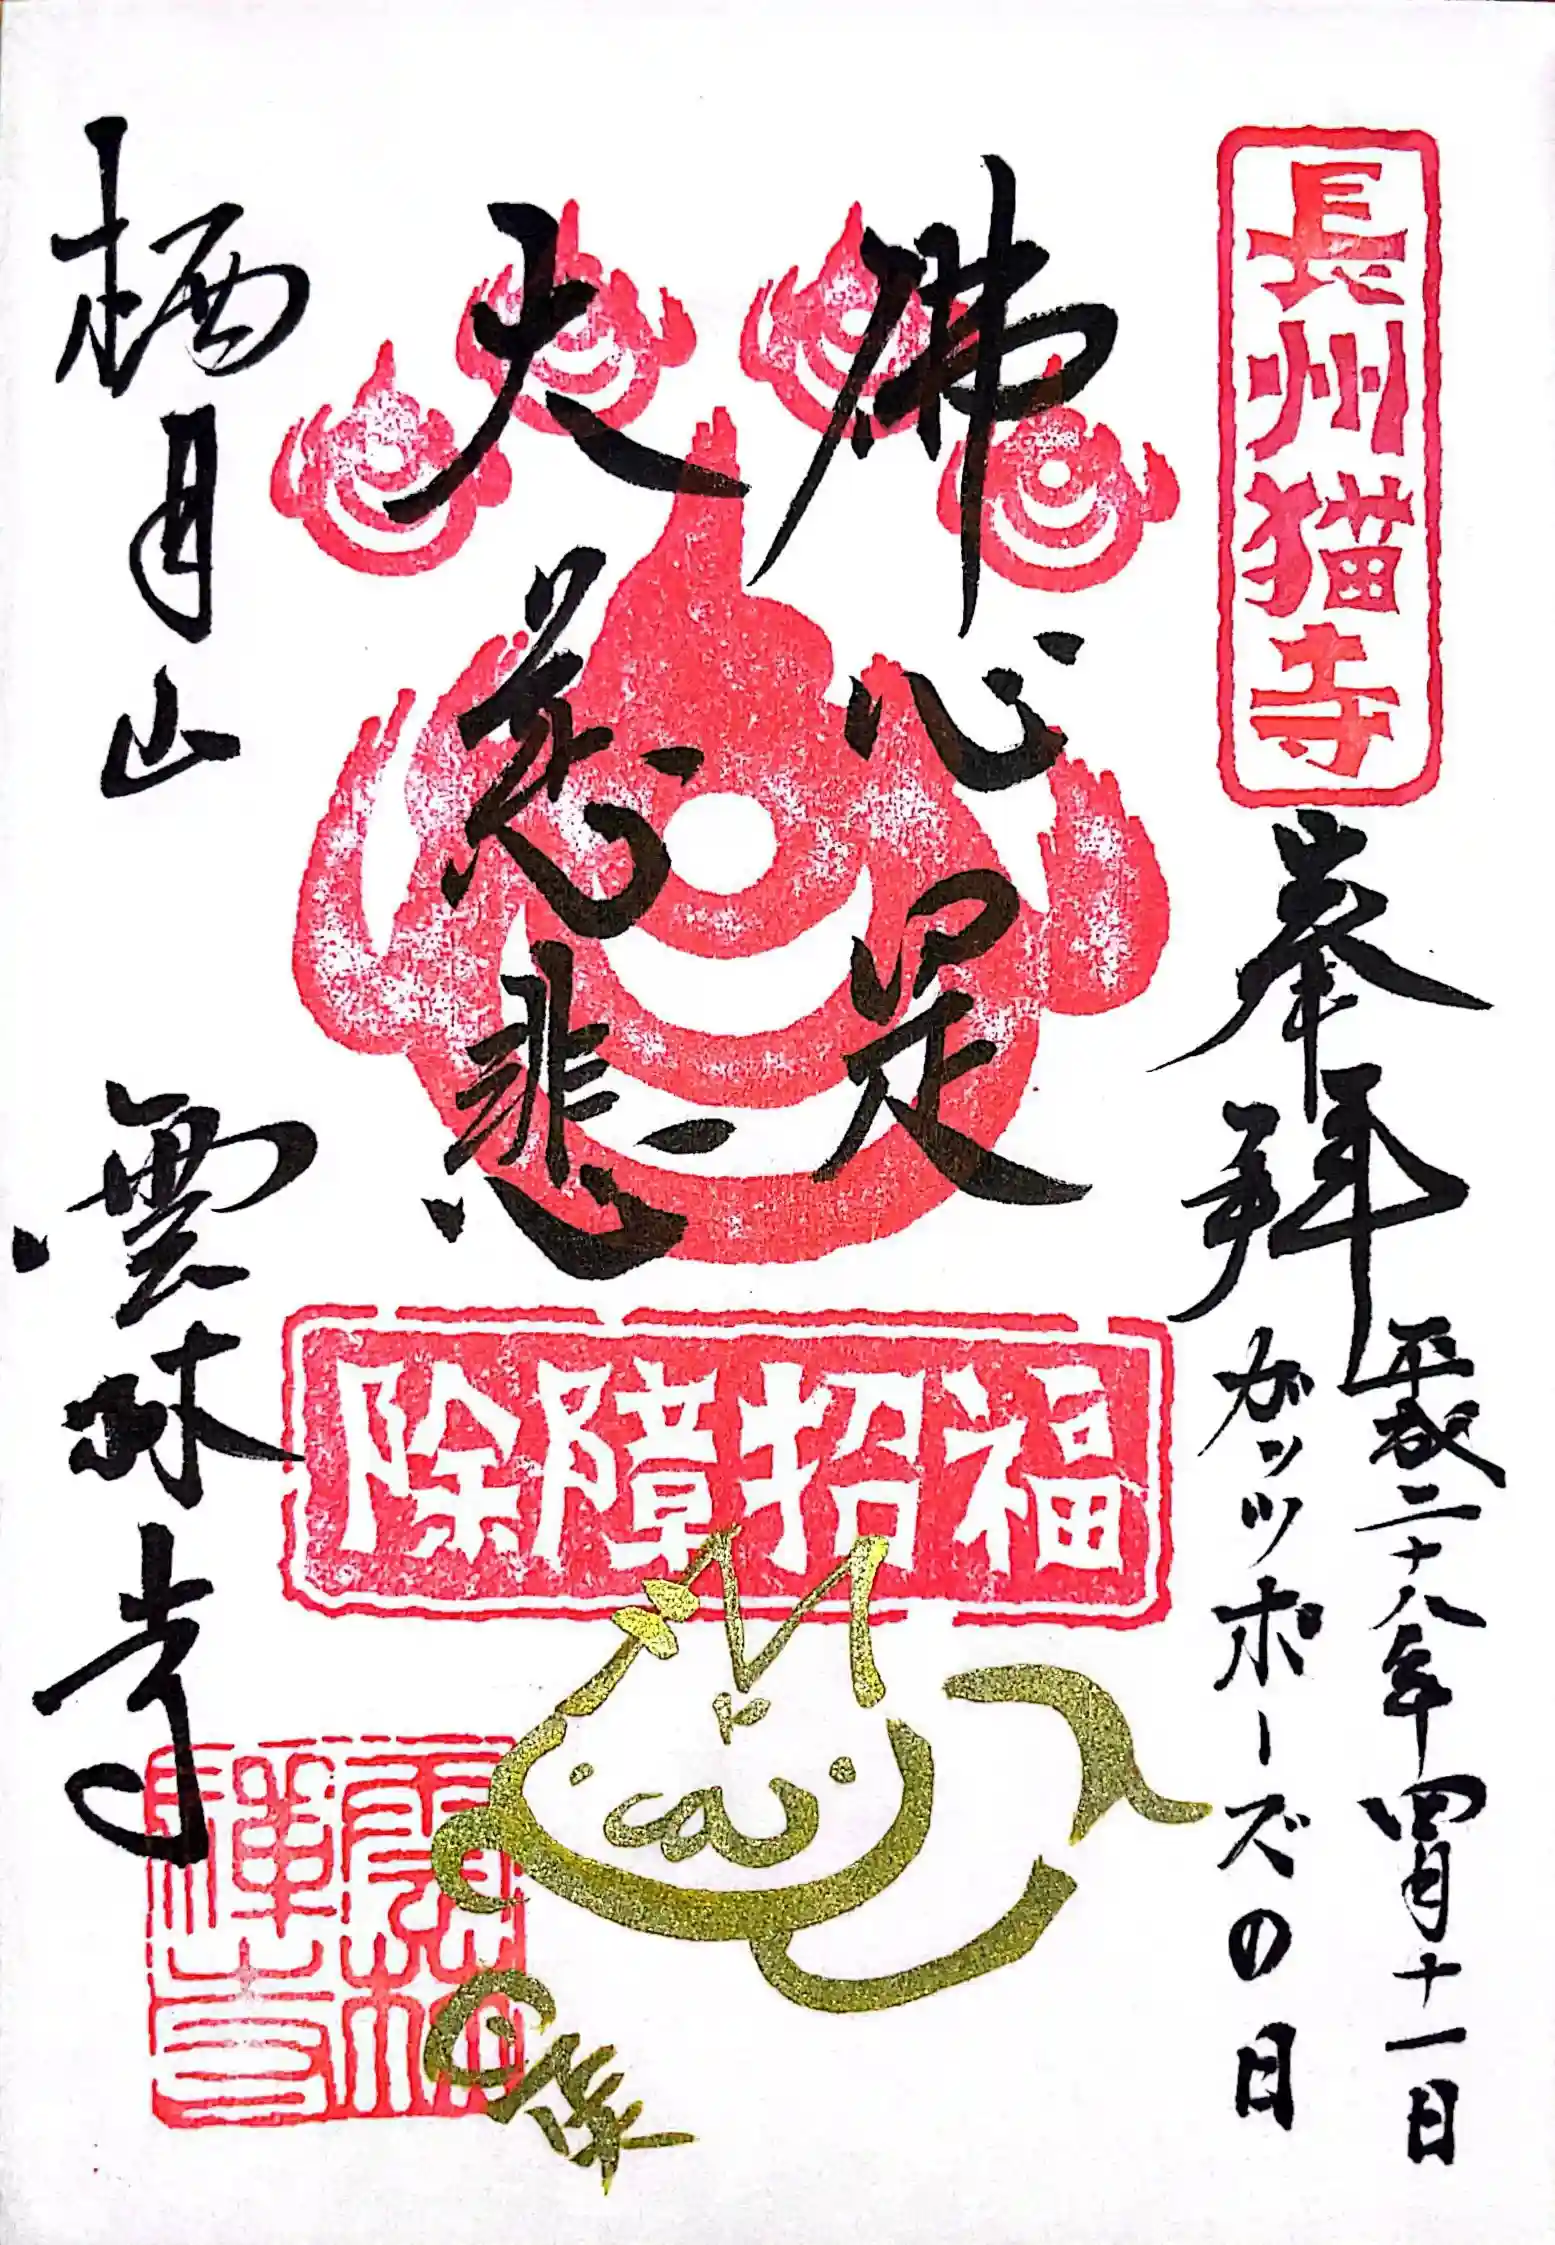 長州猫寺
奉拝
平成二十八年四月十一日
ガッツポーズの日
佛心是
大慈悲
除障招福
栖月山
雲林寺
雲林
禅寺